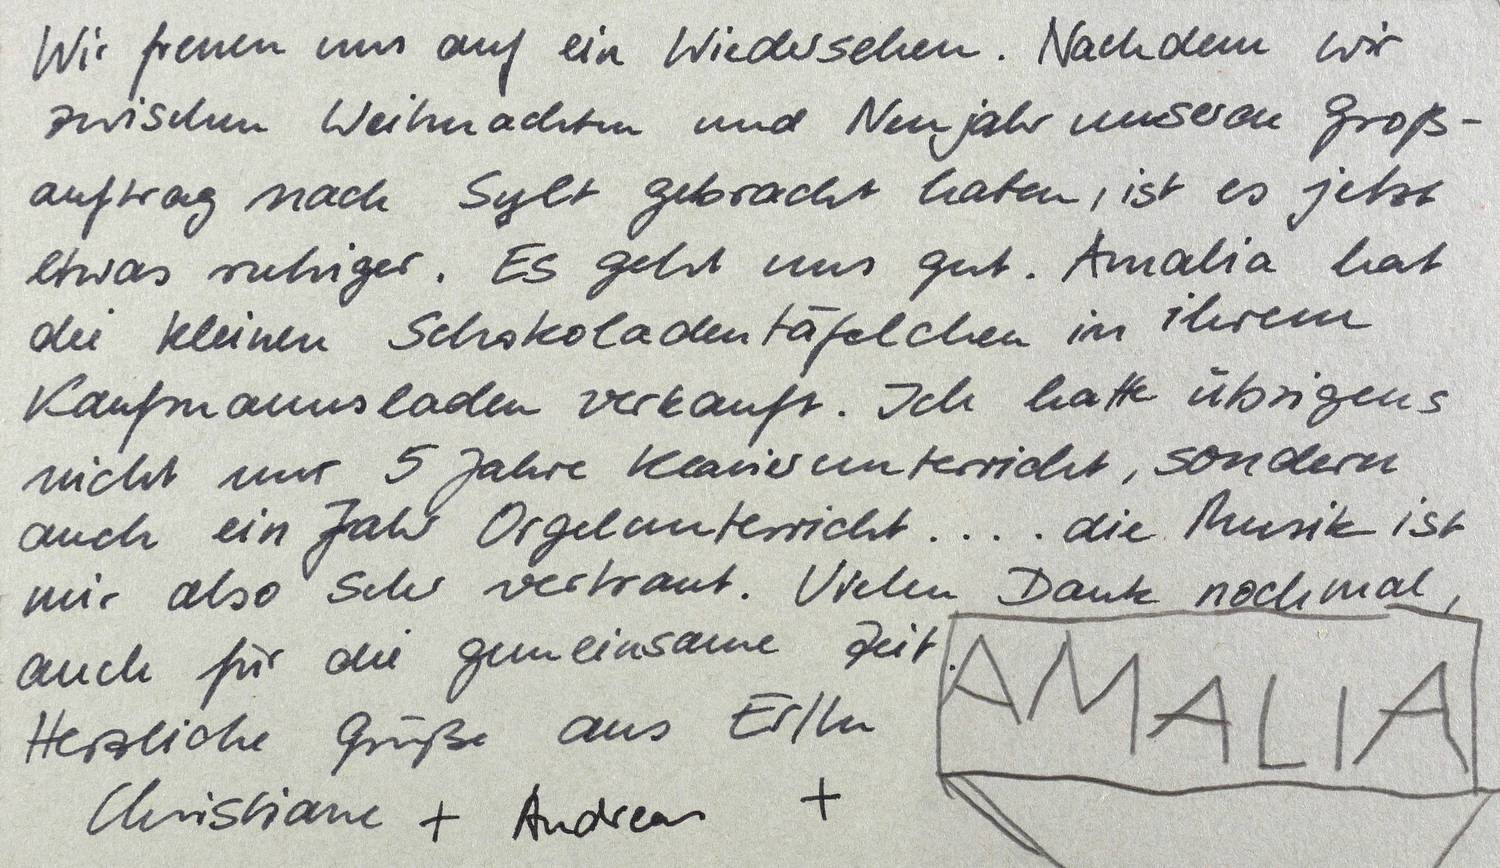 Wir freuen uns auf ein Wiedersehen. Nachdem wir
zwischen Weihnachten und Neujahr unseren Groß-
auftrag nach Sylt gebracht haben, ist es jetzt
etwas ruhiger. Es geht uns gut. Amalia hat
die kleinen Schokoladentäfelchen in ihrem
Kaufmannsladen verkauft. Ich hatte übrigens
nicht nur 5 Jahre Klavierunterricht, sondern
auch ein Jahr Orgelunterricht.... die Musik ist
mir also sehr vertraut. Vielen Dank nochmal,
auch für die gemeinsame Zeit.
Herzliche Grüße aus Erlln
Christiane + Andreas +
AMALIA